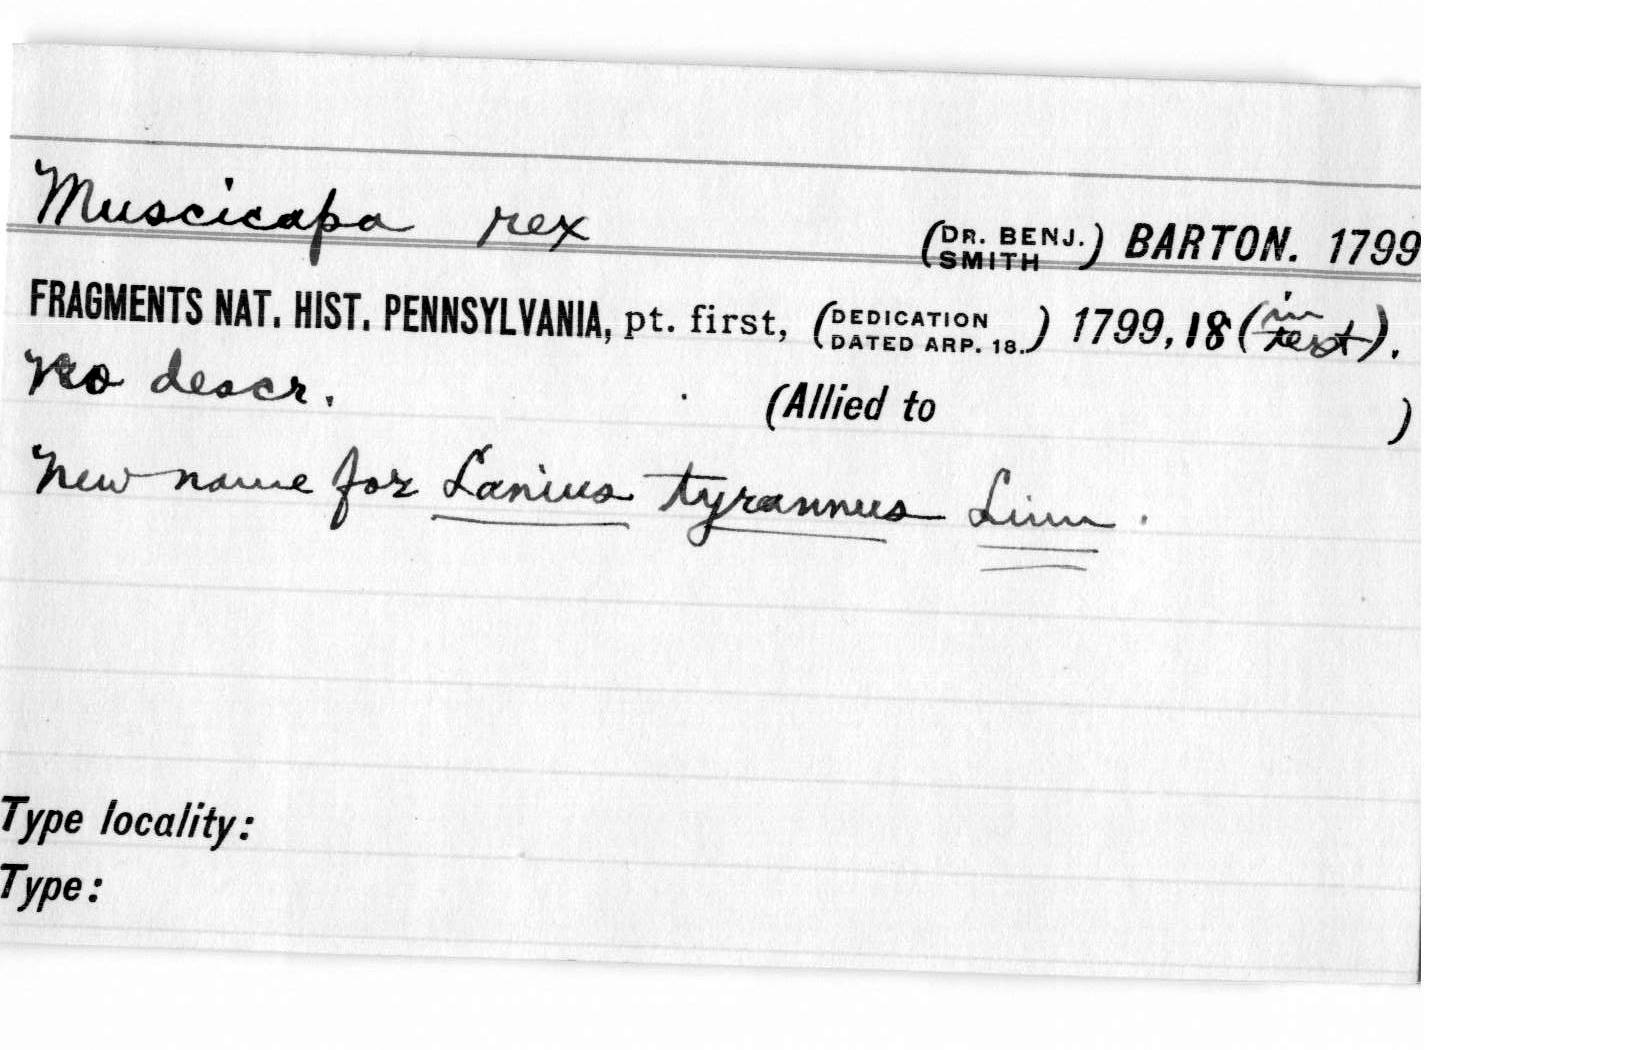 Muscicapa rex (DR. BENJ. SMITH) BARTON. 1799
FRAGMENTS NAT. HIST. PENNSYLVANIA, pt. first, (DEDICATION DATED ARP. 18.) 1799, 18 (in text).
No descr. (Allied to )
New name for Lanius tyrannus Linn.
Type locality:
Type: